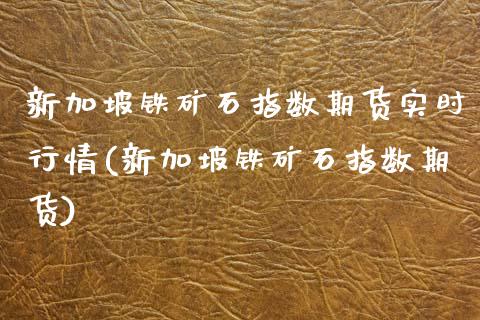 新加坡铁矿石指数期货实时
行情(新加坡铁矿石指数期
货)